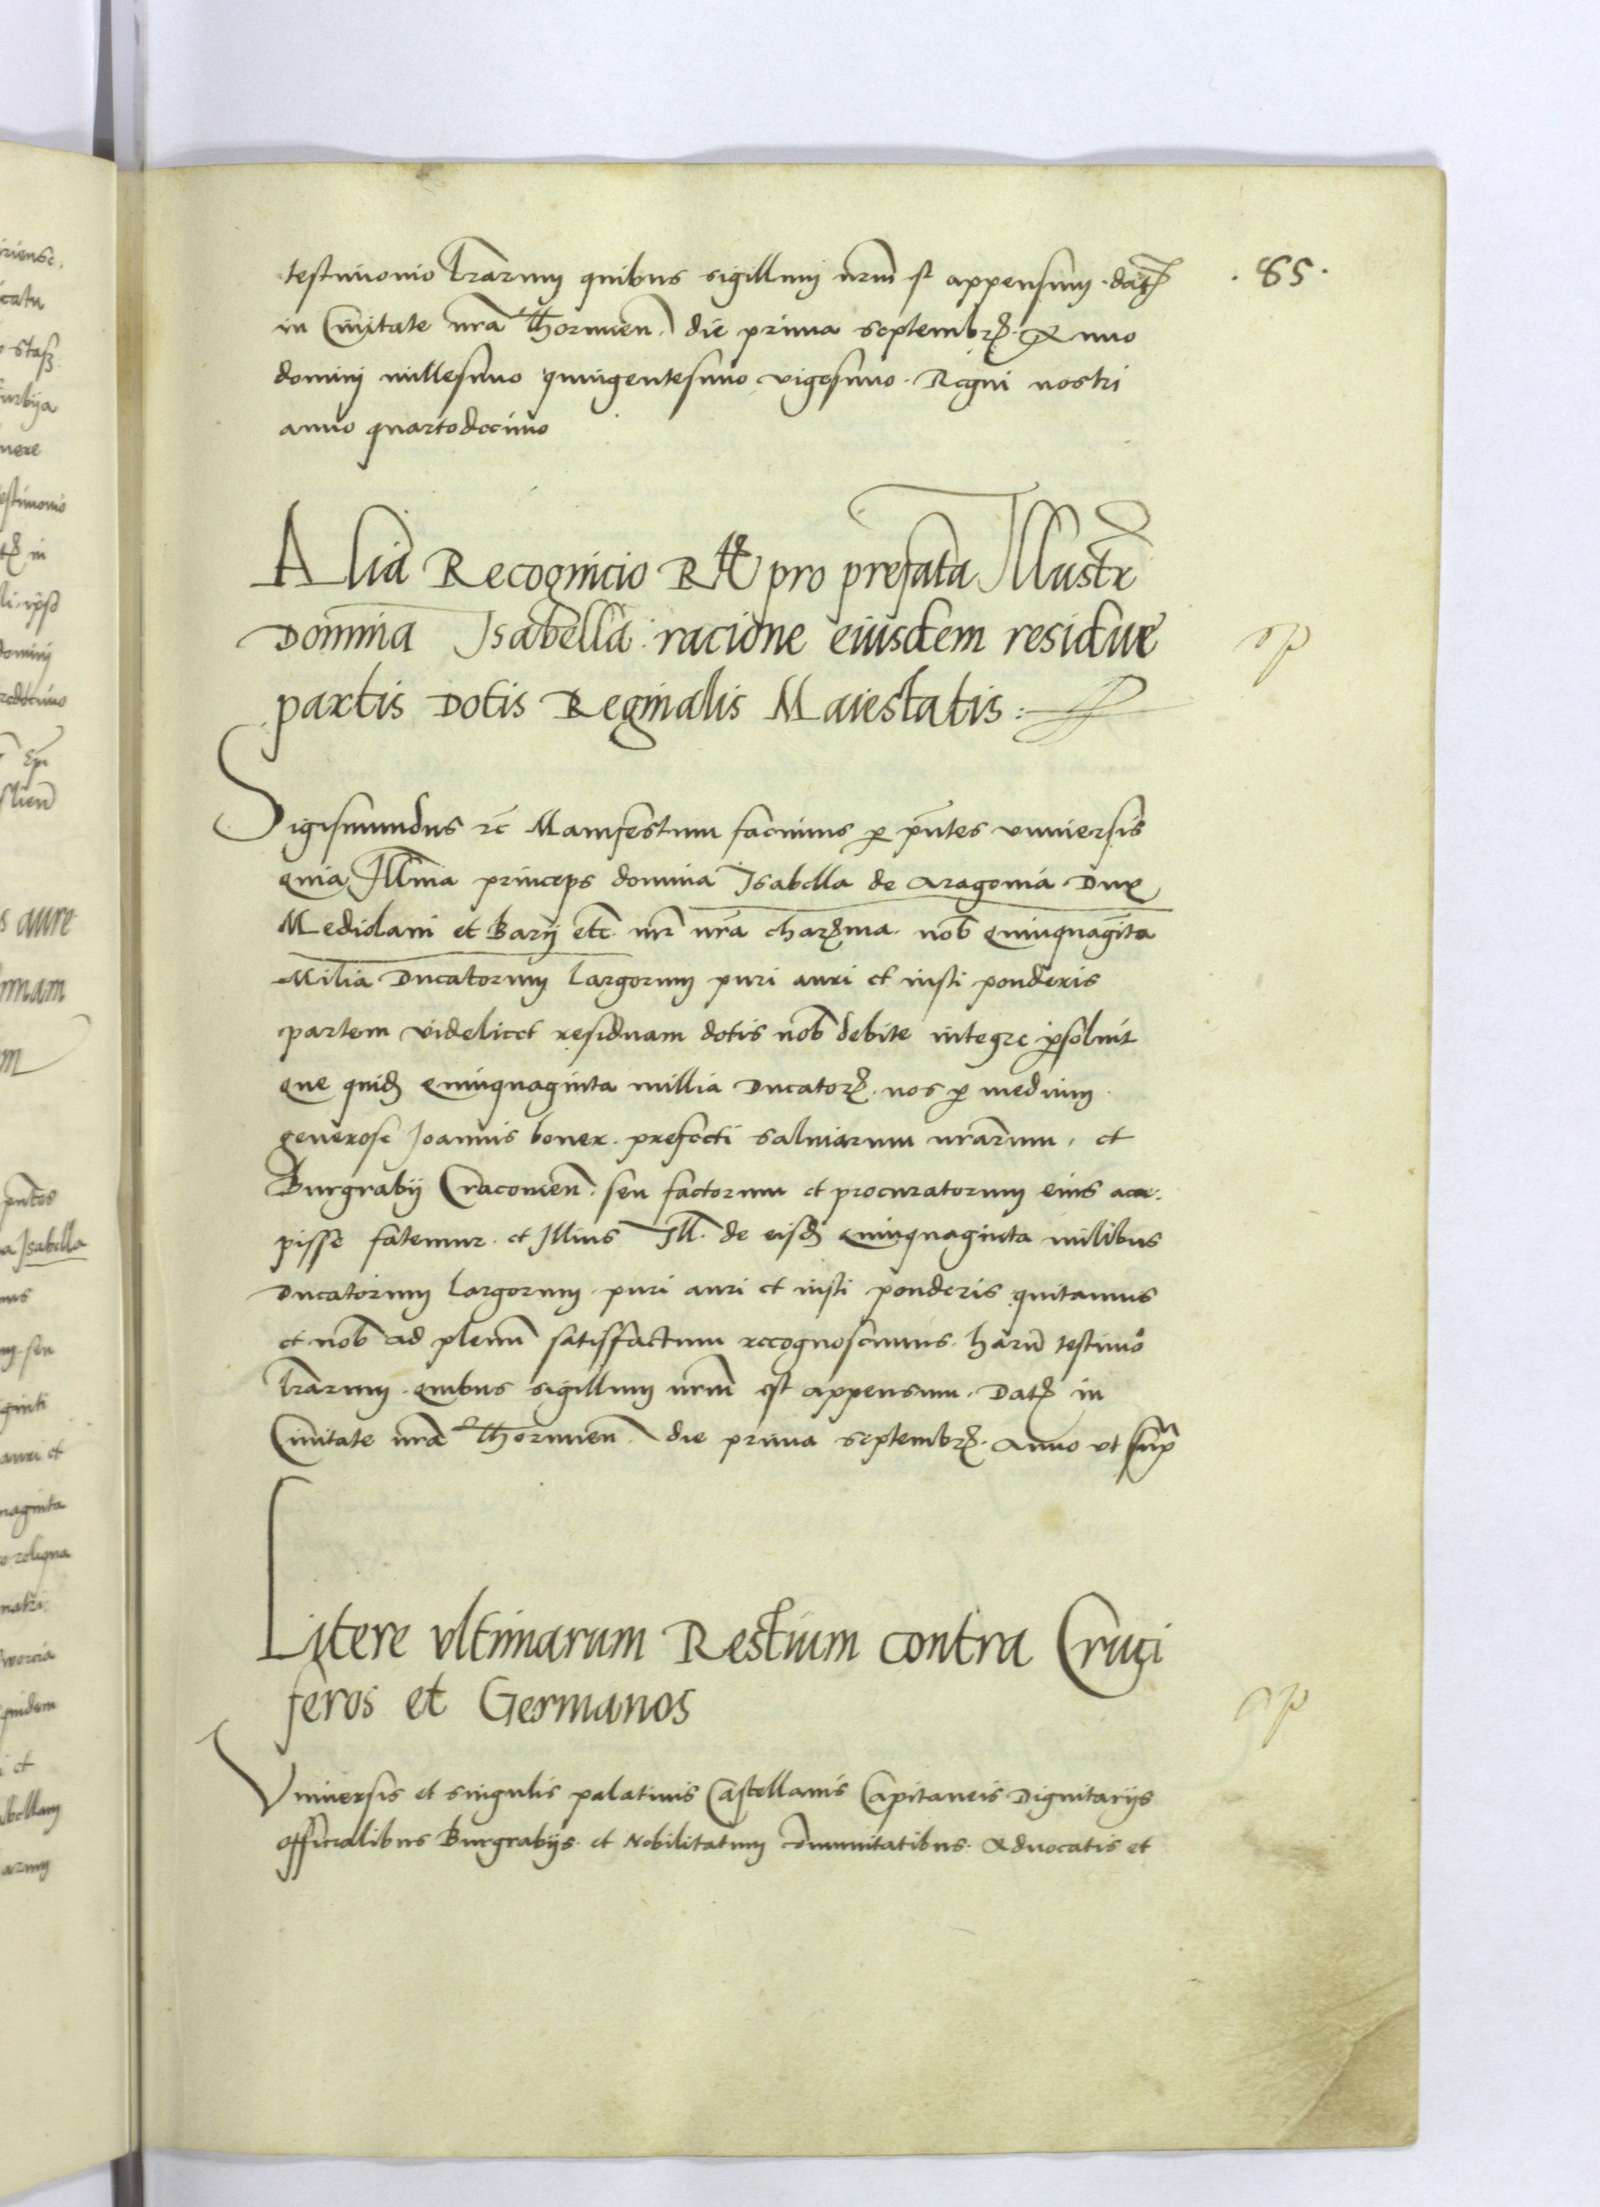 testimonio lrarum quibus sigillum nrm st appensum. dat
. 85 .
in Civitate nra Thorunien. die prima septembr. Anno
domini millesimo quingentesimo vigesimo. Regni nostri
anno quartodecimo
Alia Recognicio R pro prefata Illustr
Domina Isabella racione eiusdem residue
partis Dotis Reginalis Maiestatis :
Sigismundus rc Manifestum facimus p pntes vniversis
quia Illma princeps domina Isabella de Aragonia Dux
Mediolani et Barij etc. mr nra charma. nob quinquaginta
Milia Ducatorum largorum puri auri et iusti ponderis
partem videlicet residuam dotis nob debite integre psolvit
que quid quinquaginta millia Ducator. nos p medium
generose Joannis boner. prefecti salinarum nrarum, et
Burgrabij Cracovien. seu factorum et procuratorum eius acce-
pisse fatemur. et Illius Ill. de eisd quinquaginta milibus
Ducatorum largorum puri auri et iusti ponderis quitamus
et nob ad plenu satisffactum recognoscimus. haru testimo
lrarum quibus sigillum nrm est appensum. Dat in
Civitate nra Thorunien. die prima septembr. Anno vt supra
Litere vltimarum Restium contra Cruci
feros et Germanos
Vniversis et singulis palatinis Castellanis Capitaneis Dignitarijs
officialibus Burgrabijs. et Nobilitatum comunitatibus. Advocatis et